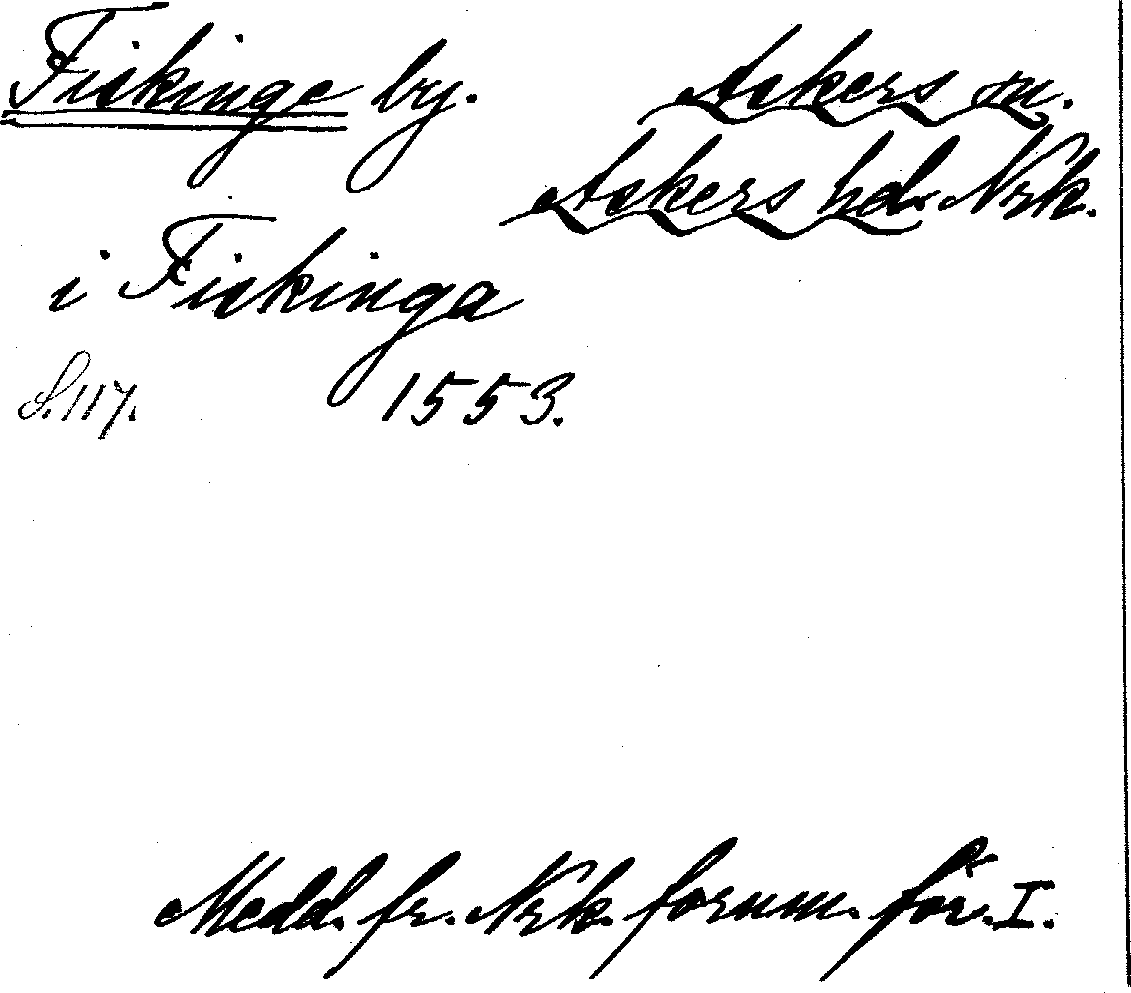 Fiskinge by. Askers sn.
Askers hd. Nrk.
i Fiskinga
S. 117. 1553.
Medd. fr. Nrk. fornm. för. I.